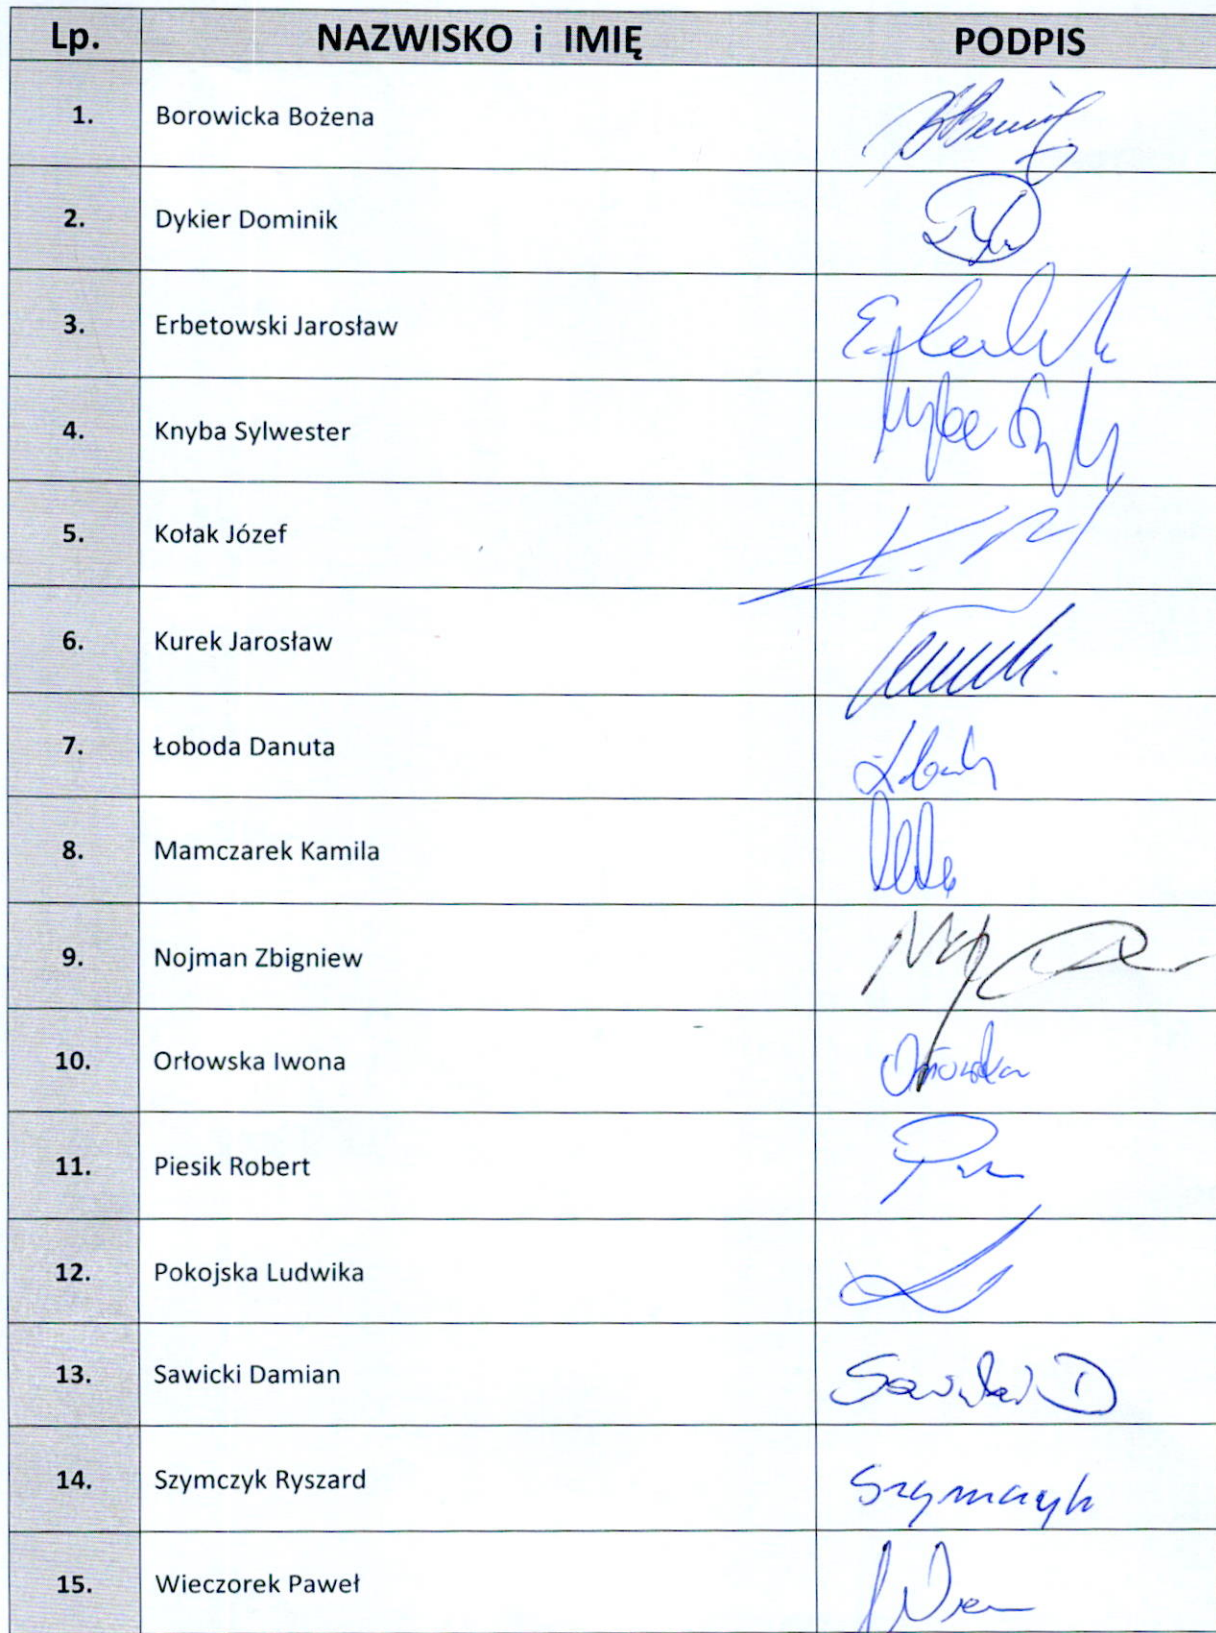 Lp. NAZWISKO i IMIĘ PODPIS
1. Borowicka Bożena
2. Dykier Dominik
3. Erbetowski Jarosław
4. Knyba Sylwester
5. Kołak Józef
6. Kurek Jarosław
7. Łoboda Danuta
8. Mamczarek Kamila
9. Nojman Zbigniew
10. Orłowska Iwona Orłowska
11. Piesik Robert
12. Pokojska Ludwika
13. Sawicki Damian Sawicki D
14. Szymczyk Ryszard Szymczyk
15. Wieczorek Paweł